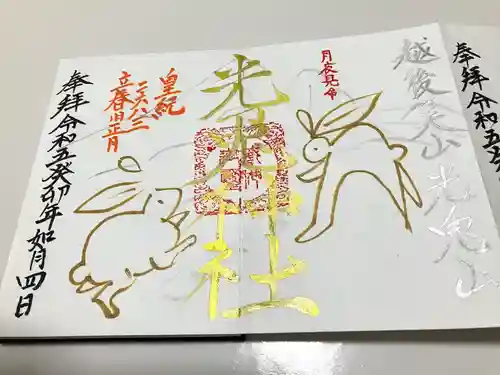 奉拝 令和五
越後
光兎山
月夜見命
光兎神社
皇紀
二六八三
立春旧正月
奉拝 令和五癸卯年 如月四日